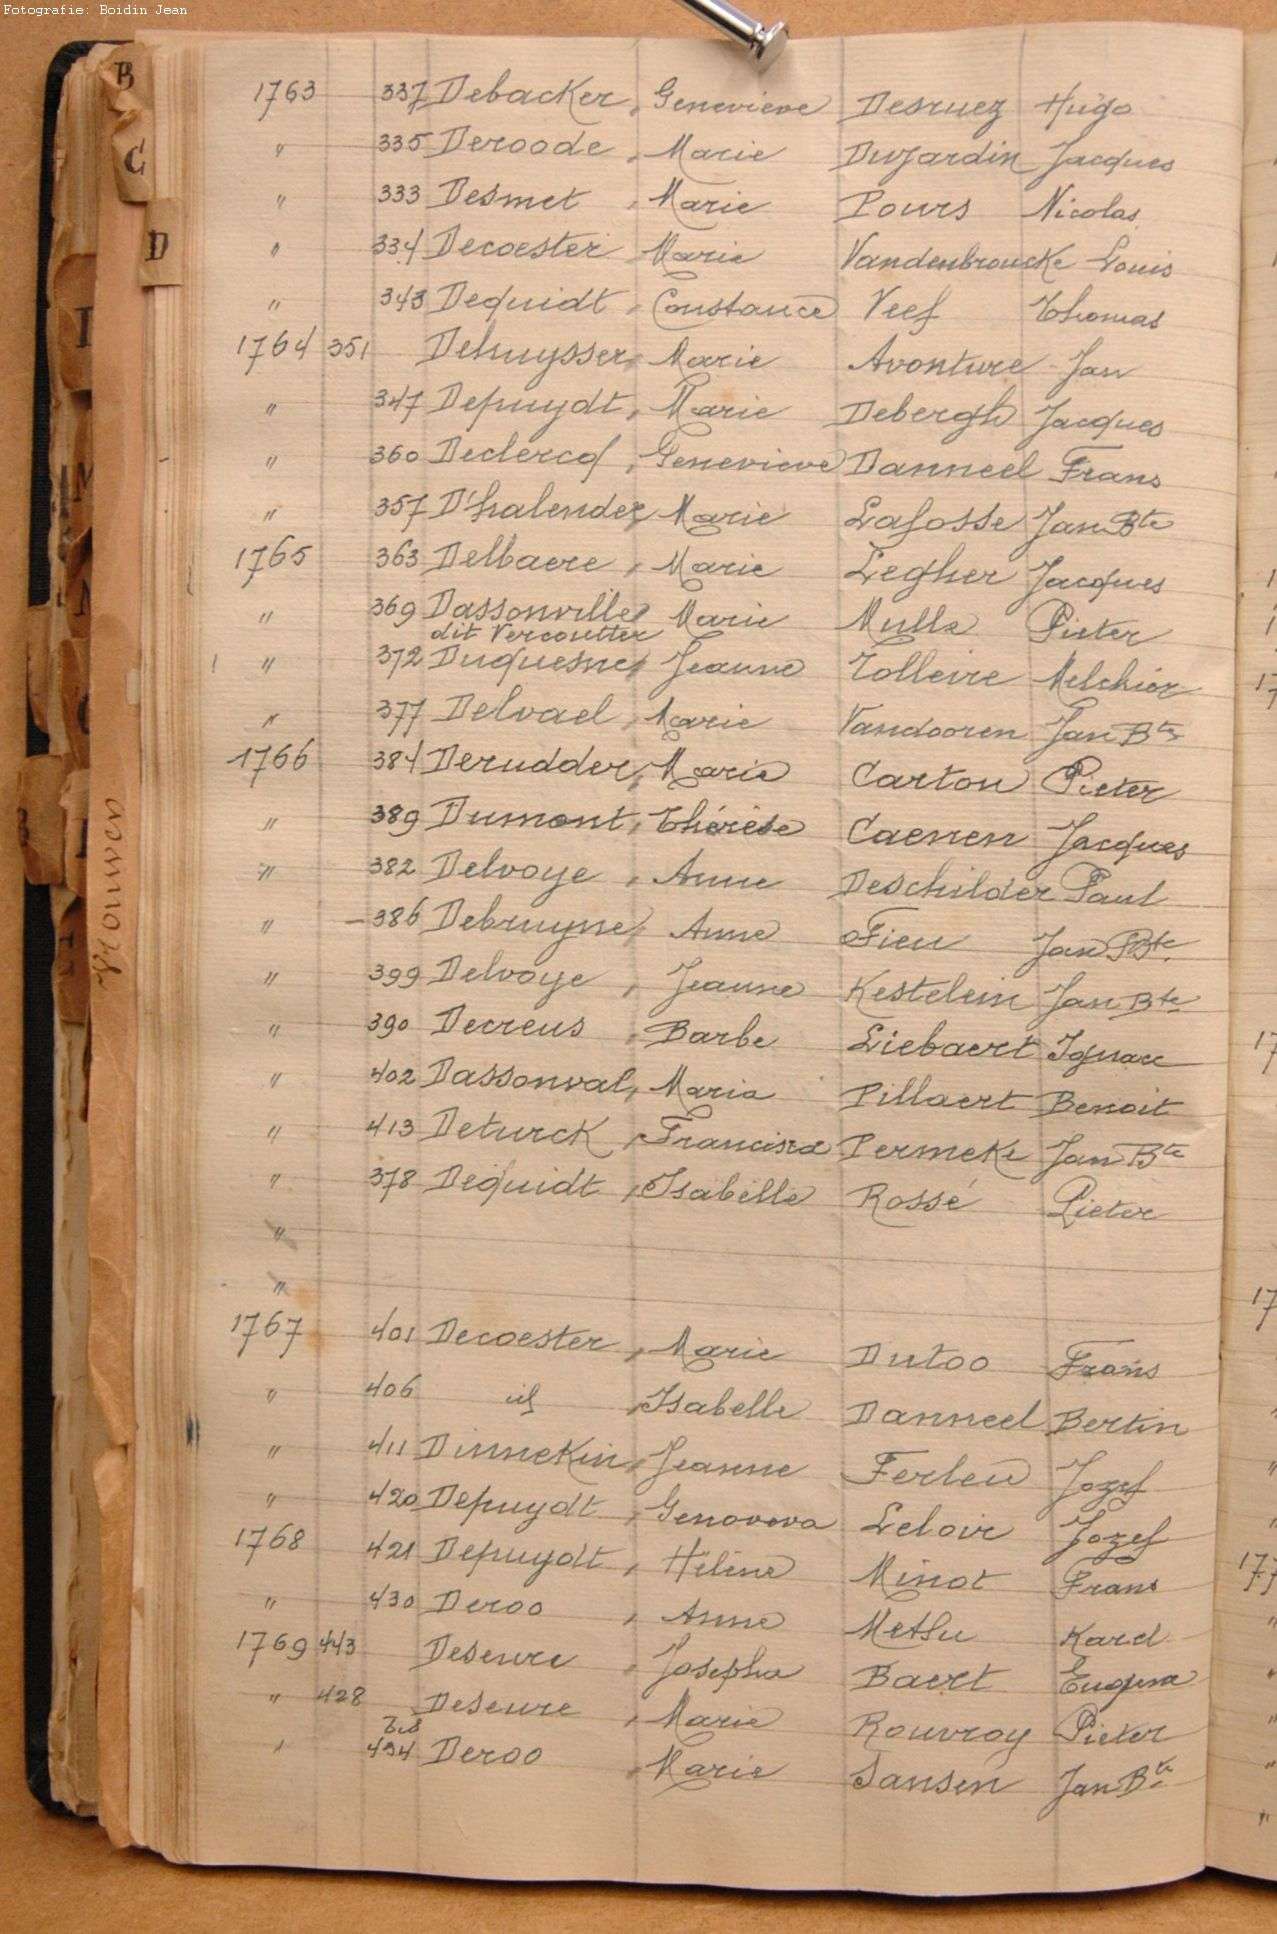 Fotografie: Boidin Jean
B
C
D
Vrouwen
1763 337 Debacker, Genevieve Desruez Hugo
" 335 Deroode, Marie Dujardin Jacques
" 333 Desmet, Marie Pours Nicolas
" 334 Decoester Marie Vandenbroucke Louis
" 343 Dequidt, Constance Veef Thomas
1764 351 Dehuysser, Marie Avonture Jan
" 347 Depuydt, Marie Debergh Jacques
" 360 Declercq, Genevieve Danneel Frans
" 357 D'halender, Marie Lafosse Jan Bte
1765 363 Delbaere, Marie Legher Jacques
" 369 Dassonville, Marie Mulle Pieter
dit Vercoutter
" 372 Duquesne, Jeanne Tolleire Melchior
" 377 Delvael, Marie Vandooren Jan Bte
1766 384 Derudder, Marie Carton Pieter
" 389 Dumont, Thérèse Caenen Jacques
" 382 Delvoye, Anne Deschilder Paul
" - 386 Debruyne, Anne Fieu Jan Bte
" 399 Delvoye, Jeanne Kestelein Jan Bte
" 390 Decreus, Barbe Liebaert Ignace
" 402 Dassonval, Maria Pillaert Benoit
" 413 Deturck, Francisca Permeke Jan Bte
" 378 Dequidt, Isabelle Rossé Pieter
"
"
1767 401 Decoester, Marie Dutoo Frans
" 406 id, Isabelle Danneel Bertin
" 411 Dinnekin, Jeanne Ferleu Jozef
" 420 Depuydt, Genoveva Leloir Jozef
1768 421 Depuydt, Hélène Minot Frans
" 430 Deroo, Anne Methu Karel
1769 443 Deseure, Josepha Baert
" 428 Deseure, Marie Rouvroy Pieter
bis
" 434 Deroo, Marie Jansen Jan Bte